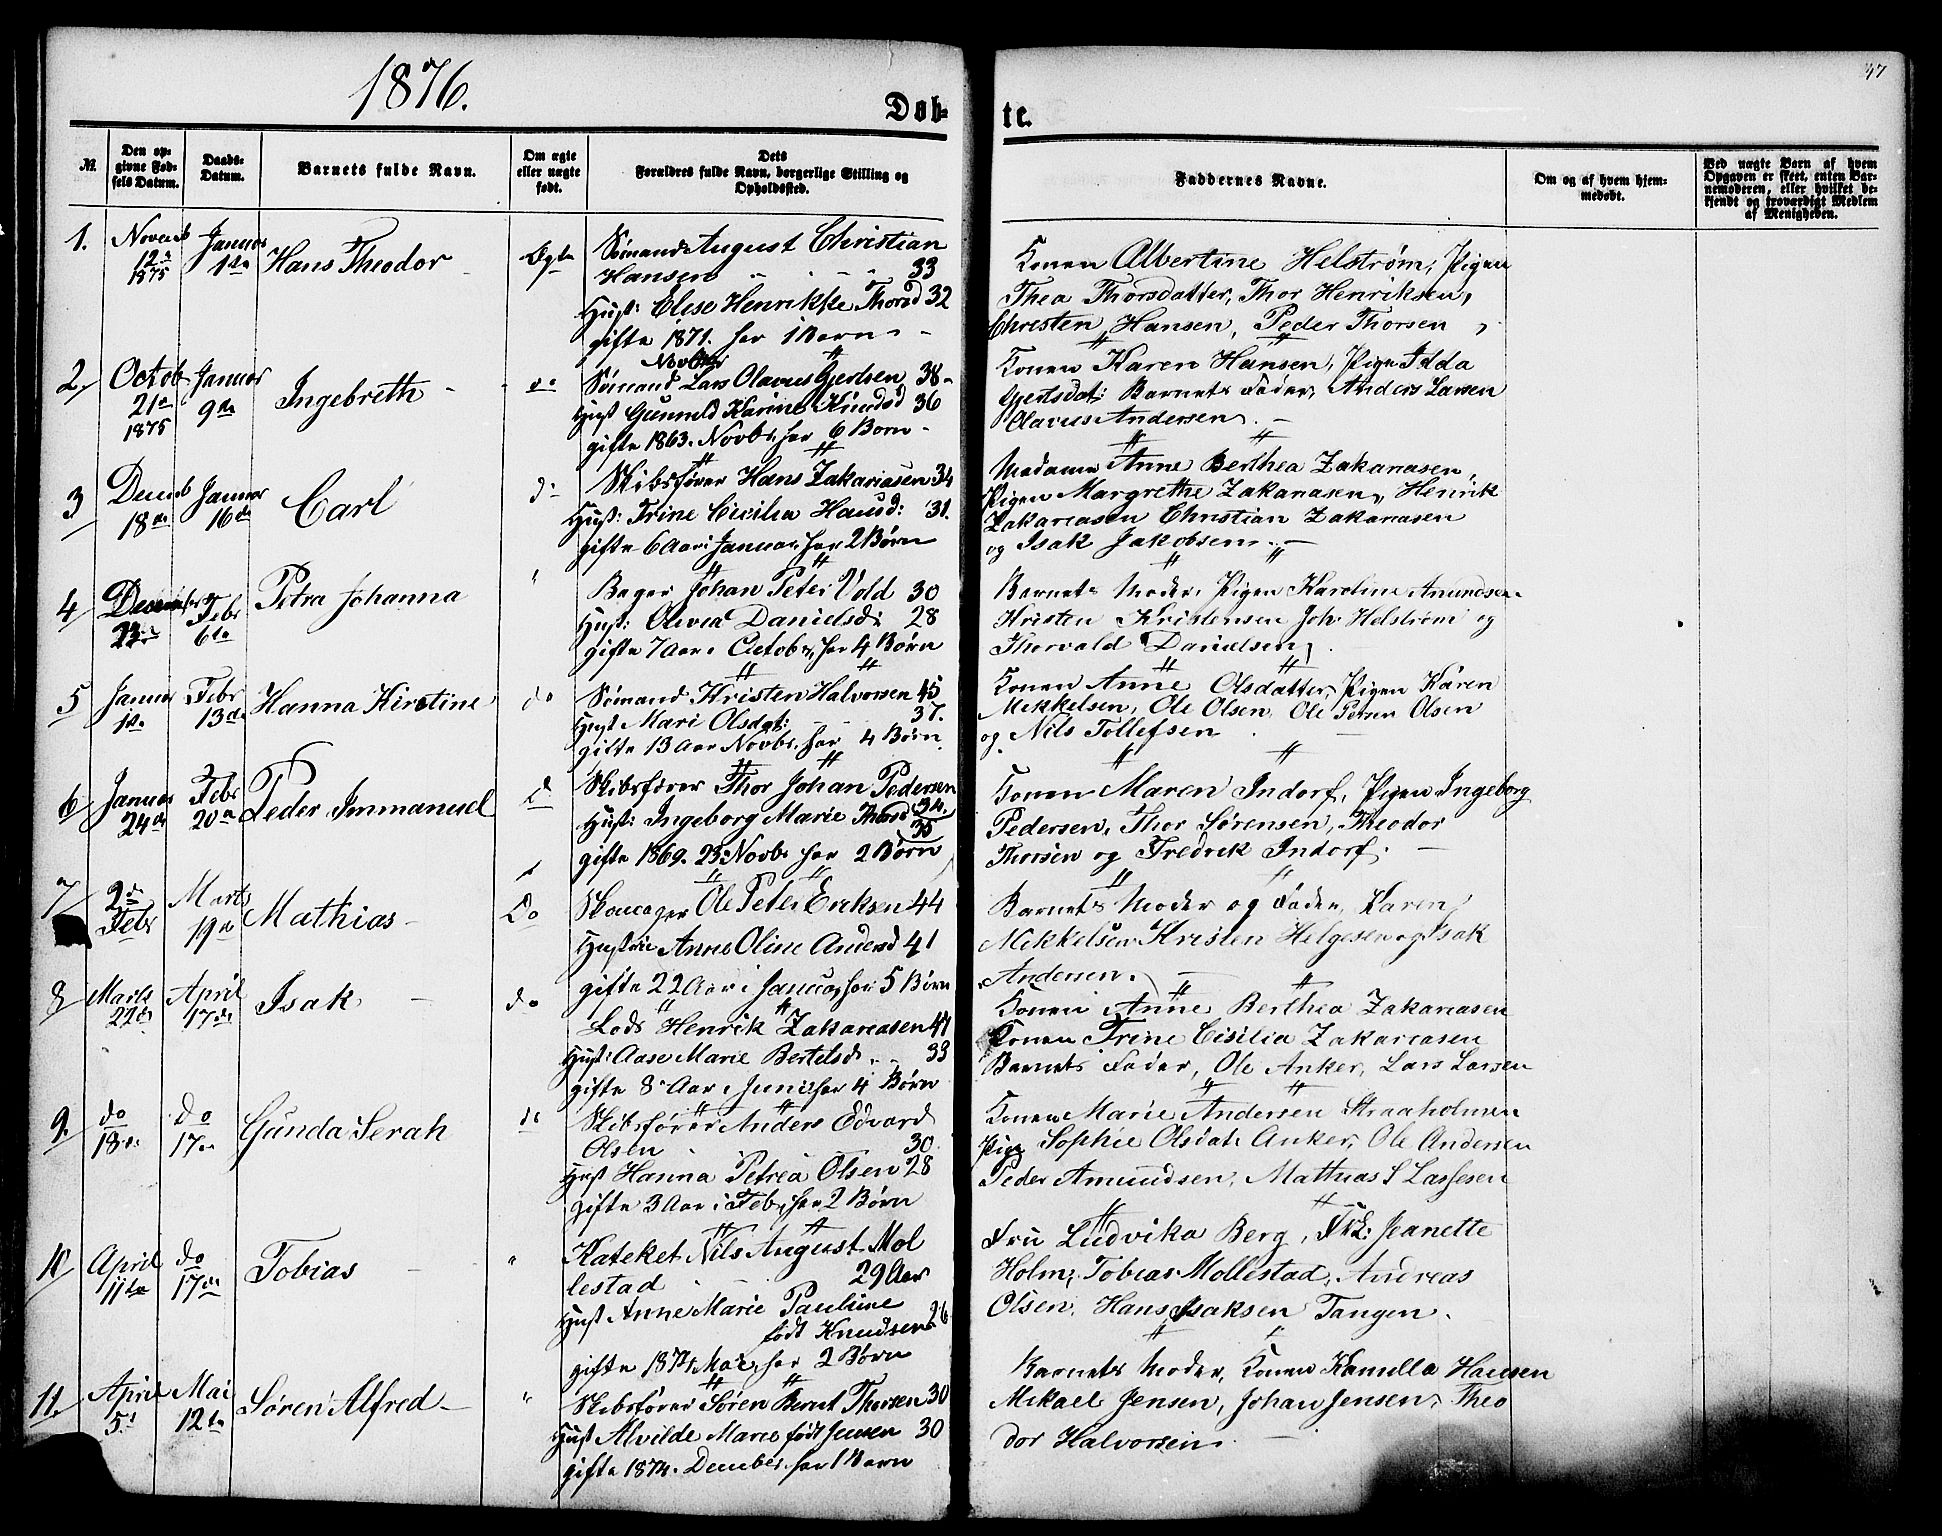 1876.
47
Døb-
te.
№
Den op-
givne Fød-
sels Datum.
Daabs-
Datum.
Barnets fulde Navn.
Om ægte
eller uægte
født.
Dets
Forældres fulde Navn, borgerlige Stilling og
Opholdssted.
Faddernes Navne.
Om og af hvem hjem-
medøbt.
Ved uægte Barn af hvem
Opgaven er skeet, enten Bar-
nemoderen, eller hvilket be-
kjendt og troværdigt Medlem
af Menigheden.
1.
Novemb
12te
1875
Januar
1ste
Hans Theodor
Ægte
Sømand August Christian
Hansen 33
Hust: Elise Henrikke Thorsd 32
gifte 1871. har 1 Barn
Konen Albertine Helstrøm, Pigen
Thea Thorsdatter, Thor Henriksen,
Christen Hansen, Peder Thorsen
2
Octob
21de
1875
Januar
9de
Ingebreth
do
Sømand Lars Olavus Gjertsen 38
Hust Gunnild Karine Knudsd 36
gifte 1863. Novbr, har 6 Born
Konen Karen Hansen, Pige Idda
Gjertsdat: Barnets Fader, Anders Larsen
Olavus Andersen
3
Decemb
18de
Januar
16de
Carl
do
Skibsfører Hans Zakariasen 34
Hust: Trine Cicilia Hansd: 31.
gifte 6 Aar i Januar, har 2 Børn
Madame Anne Berthea Zakariasen,
Pigen Margrethe Zakariasen, Henrik
Zakariasen Christian Zakariasen
og Isak Jakobsen
4
December
23de
Febr
6te
Petra Johanna
"
Bager Johan Peter Vold 30
Hust: Olivea Danielsd: 28
gifte 7 Aar i Octobr, har 4 Børn
Barnets Moder, Pigen Karoline Amundsen
Kristen Kristensen Joh. Helstrøm og
Thorvald Danielsen
5
Januar
1ste
Febr
13de
Hanna Kirstine
do
Sømand Kristen Halvorsen 45
Hust Mari Olsdat: 37.
gifte 13 Aar Novbr, har 4 Børn
Konen Anne Olsdatter, Pigen Karen
Mekkelsen, Ole Olsen, Ole Persen Olsen
og Nils Tollefsen
6
Januar
24de
Febr
20de
Peder Immanuel
do
Skibsfører Thor Johan Pedersen
34.
Hust: Ingeborg Marie Thorsd 35
gifte 1869. 23. Novbr har 2 Børn
Konen Maren Indorf, Pigen Ingeborg
Pedersen, Thor Sørensen, Theodor
Thorsen og Fredrik Indorf.
7
2den
Febr
Marts
19de
Mathias
Do
Skomager Ole Peter Eriksen 44
Hustru Anne Oline Andersd 41
gifte 22 Aar i Januar, har 5 Børn
Barnets Moder og Fader, Karen
Mekkelsen Kristen Helgesen og Isak
Andersen.
8
Marts
22de
April
17de
Isak
do
Lods Henrik Zakariasen 41
Hust: Aase Marie Bertelsd 33
gifte 8 Aar i Juni, har 4 Børn
Konen Anne Berthea Zakariasen
Konen Trine Cisilia Zakariasen
Barnets Fader, Ole Anker, Lars Larsen
9.
do
18de
do
17de
Gunda Serah
do
Skibsfører Anders Edvard
Olsen 30
Hust Hanna Petrea Olsen 28
gifte 3 Aar i Feb, har 2 Børn
Konen Marie Andersen Straaholmen
Pige Sophie Olsdatr Anker, Ole Andersen
Peder Amundsen, Mathias S Lassesen
10
April
11te
do
17de
Tobias
"
Kateket Nils August Mol
lestad 29 Aar
Hust Anne Marie Pauline
født Knudsen 26
gifte 1874 Mai, har 2 Børn
Fru Ludvika Berg, Frk: Jeanette
Holm, Tobias Mollestad, Andreas
Olsen, Hans Isaksen Tangen.
11.
April
5te
Mai
12te
Søren Alfred
"
Skibsfører Søren Bernt Thorsen 30
Hust Alvilde Marie født Jensen 30
gifte 1874. December, har 1 Barn
Barnets Moder, Konen Kamilla Hansen
Mikael Jensen, Johan Jensen, Theo
dor Halvorsen